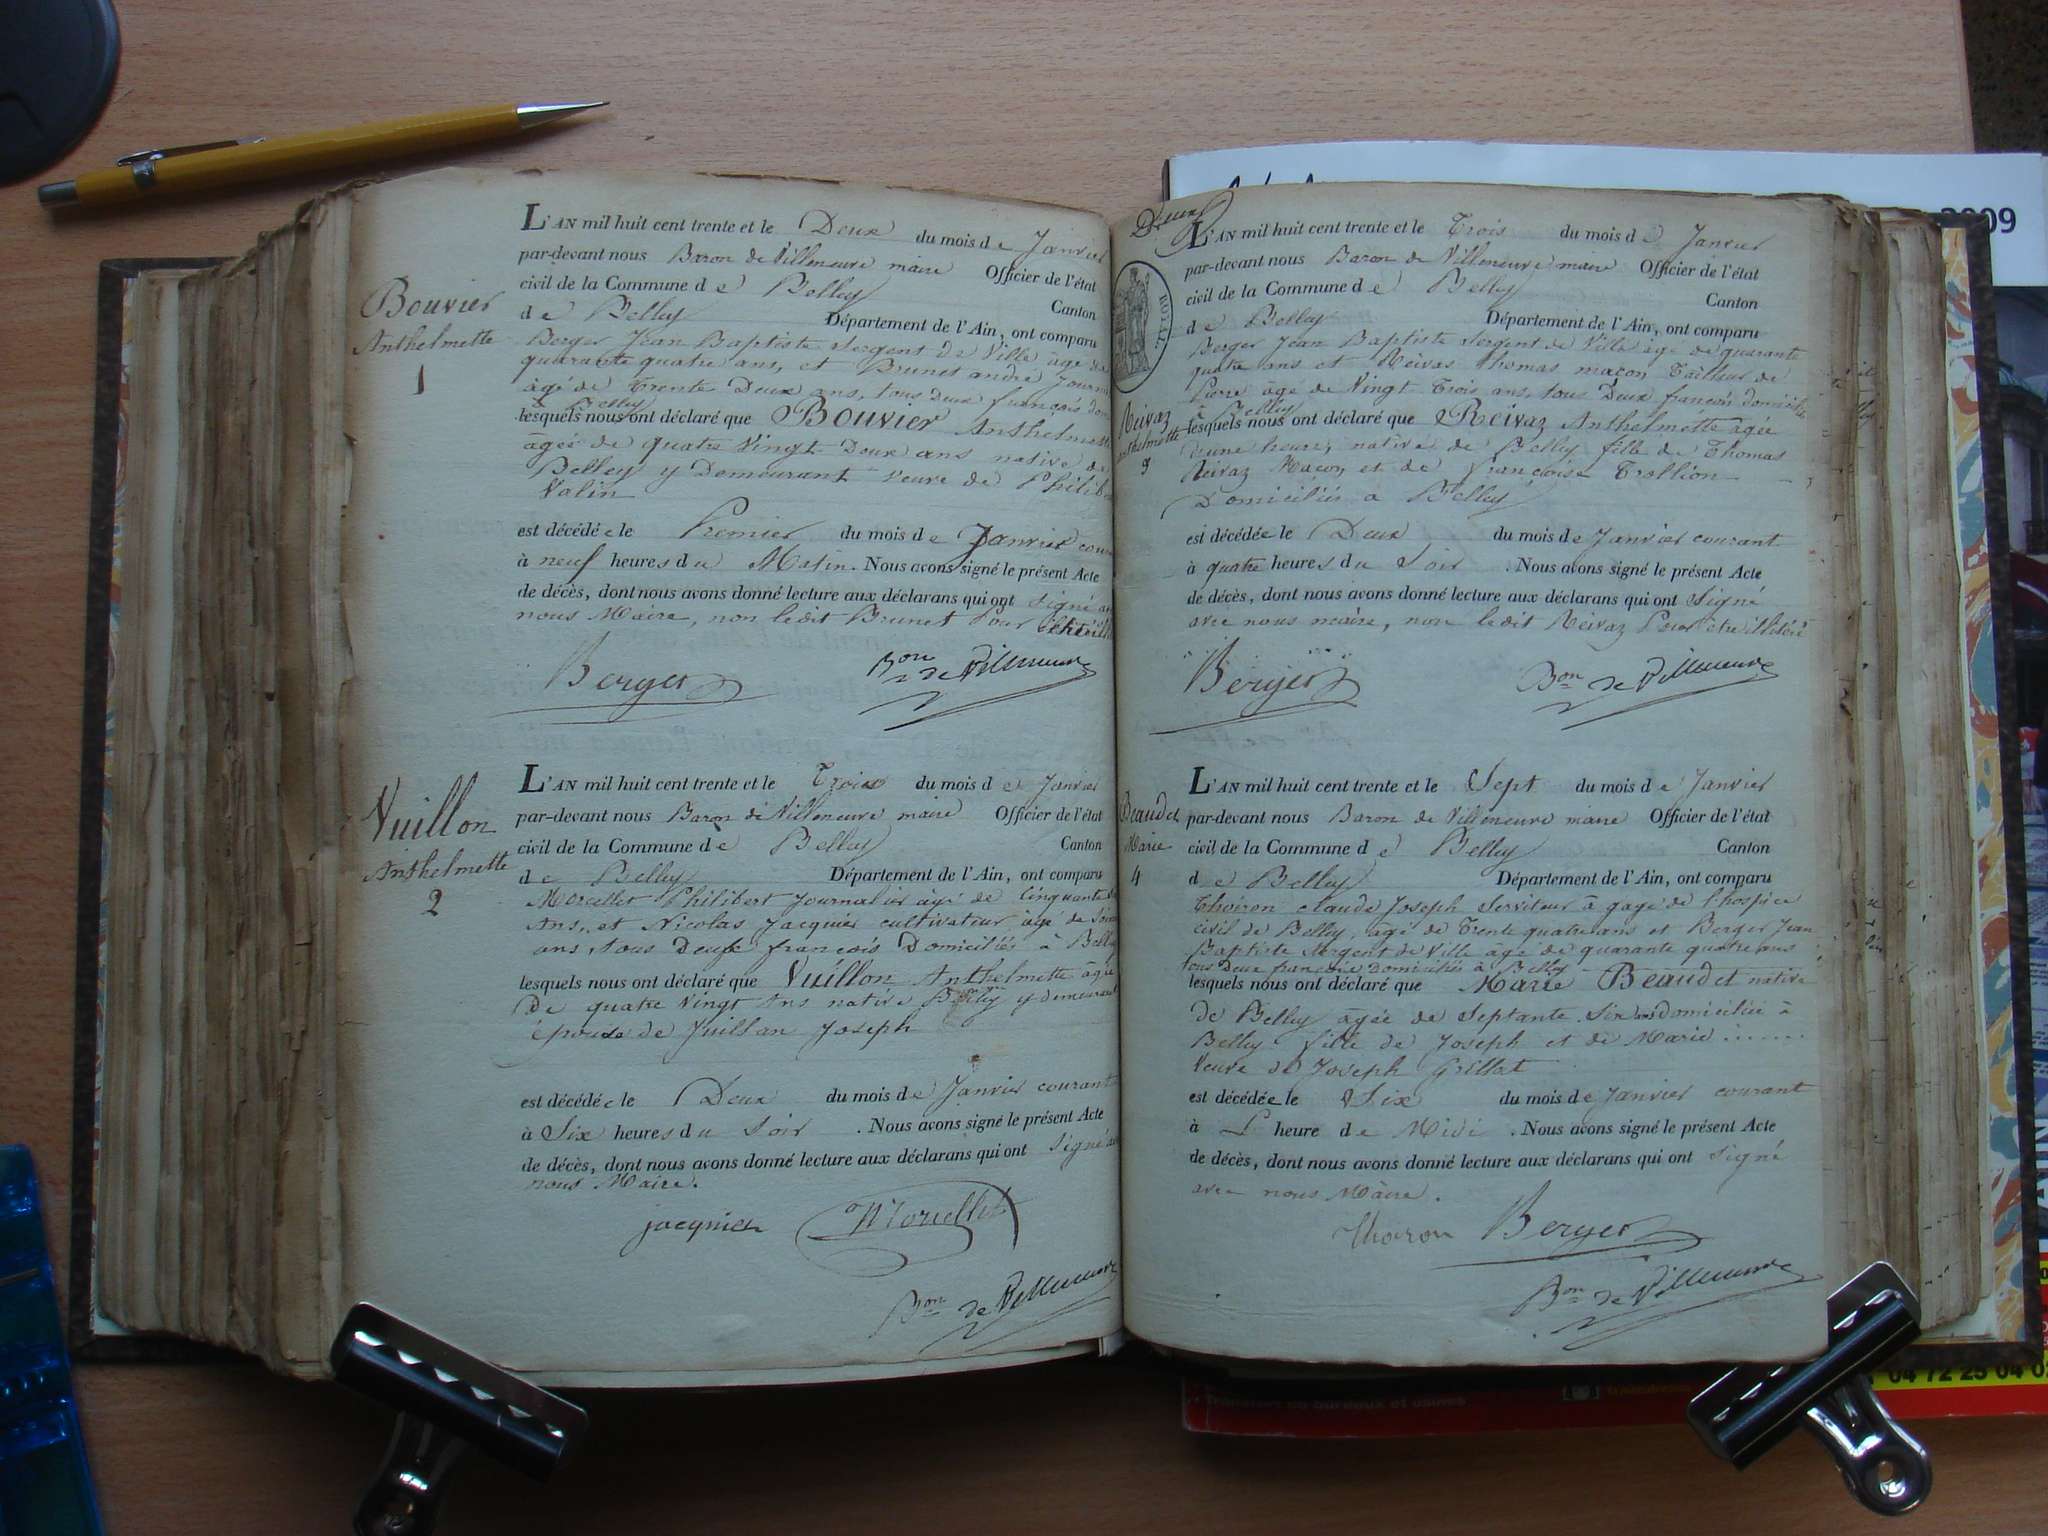 Bouvier
Anthelmette
1
L'AN mil huit cent trente et le Deux du mois de Janvier
par-devant nous Baron de Villeneuve maire Officier de l'état
civil de la Commune de Belley Canton
de Belley Département de l'Ain, ont comparu
Berger Jean Baptiste Sergent de Ville âgé de
quarante quatre ans, et Brunet andré
âgé de Trente Deux ans, tous deux françois
à Belley
lesquels nous ont déclaré que Bouvier Anthelmette
âgée de quatre Vingt Deux ans native de
Belley y Demeurant veuve de
Valin
est décédée le Premier du mois de Janvier
à neuf heures du Matin. Nous avons signé le présent Acte
de décès, dont nous avons donné lecture aux déclarans qui ont signé
nous Maire, non ledit Brunet Pour
Berger Bon de Villeneuve
Vuillon
Anthelmette
2
L'AN mil huit cent trente et le Trois du mois de Janvier
par-devant nous Baron de Villeneuve maire Officier de l'état
civil de la Commune de Belley Canton
de Belley Département de l'Ain, ont comparu
Morcellet Philibert Journalier âgé de Cinquante
Ans, et Nicolas Jacquier cultivateur âgé de
ans, tous Deux françois Domiciliés à Belley
lesquels nous ont déclaré que Vuillon Anthelmette âgée
De quatre Vingt Ans native Belley y demeurant
épouse de Juillan Joseph
est décédée le Deux du mois de Janvier courant
à Six heures du Soir . Nous avons signé le présent Acte
de décès, dont nous avons donné lecture aux déclarans qui ont Signé
nous Maire.
jacquier Morcellet
Bon de Villeneuve
Deux
ROYAL
Reivaz
Anthelmette
3
L'AN mil huit cent trente et le Trois du mois de Janvier
par-devant nous Baron de Villeneuve maire Officier de l'état
civil de la Commune de Belley Canton
de Belley Département de l'Ain, ont comparu
Berger Jean Baptiste Sergent de Ville âgé de quarante
quatre ans et Reivaz Thomas maçon Tailleur de
Pierre âgé de Vingt Trois ans, tous Deux françois
à Belley
lesquels nous ont déclaré que Reivaz Anthelmette âgée
d'une heure, native de Belley fille de Thomas
Reivaz Maçon, et de françoise Trollion
Domiciliés à Belley
est décédée le Deux du mois de Janvier courant
à quatre heures du Soir . Nous avons signé le présent Acte
de décès, dont nous avons donné lecture aux déclarans qui ont signé
avec nous maire, non ledit Reivaz Pour être illitéré
Berger Bon de Villeneuve
Beaudet
Marie
4
L'AN mil huit cent trente et le Sept du mois de Janvier
par-devant nous Baron de Villeneuve maire Officier de l'état
civil de la Commune de Belley Canton
de Belley Département de l'Ain, ont comparu
Thoiron claude Joseph Serviteur à gage de l'hospice
civil de Belley, agé de Trente quatre ans et Berger Jean
Baptiste Sergent de Ville âgé de quarante quatre ans
tous Deux françois Domiciliés à Belley
lesquels nous ont déclaré que Marie Beaudet native
de Belley âgée de Septante Six ans domiciliée à
Belley fille de Joseph et de Marie .......
Veuve de Joseph Grillat
est décédée le Six du mois de Janvier courant
à 1 heure de Midi . Nous avons signé le présent Acte
de décès, dont nous avons donné lecture aux déclarans qui ont signé
avec nous Maire.
Thoiron Berger
Bon de Villeneuve
2009
04 72 25 04 0